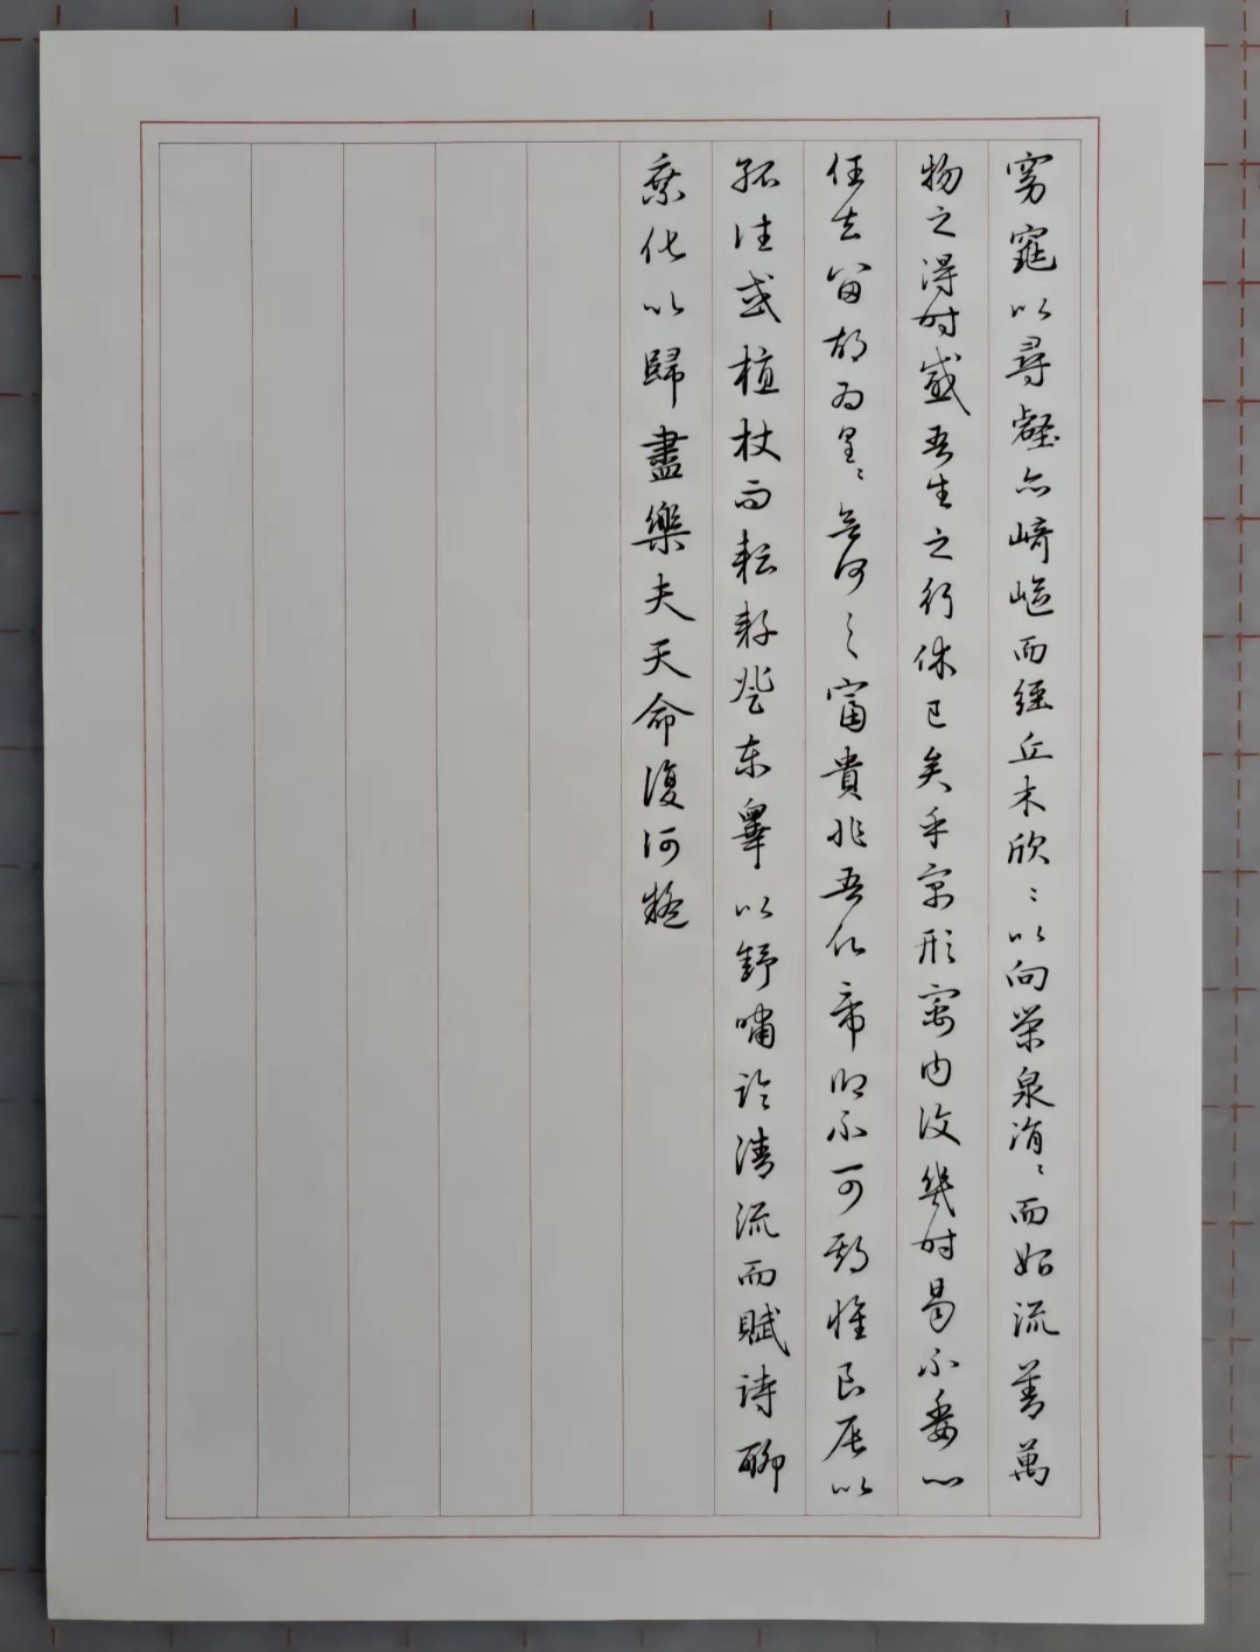 窈窕以尋壑亦崎嶇而經丘木欣〻以向榮泉涓〻而始流善萬
物之得時感吾生之行休已矣乎寓形寓内復幾時曷不委心
任去留胡為皇〻兮何之富貴非吾仏帝鄉不可期惟良辰以
孤往或植杖而耘耔登東皋以舒嘯臨清流而賦詩聊
乘化以歸盡樂夫天命復何疑